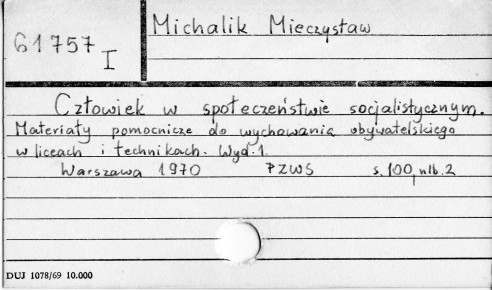 61757 I
Michalik Mieczysław
Człowiek w społeczeństwie socjalistycznym.
Materiały pomocnicze do wychowania obywatelskiego
w liceach i technikach. Wyd. 1.
Warszawa 1970 PZWS s. 100, nlb. 2
DUJ 1078/69 10.000